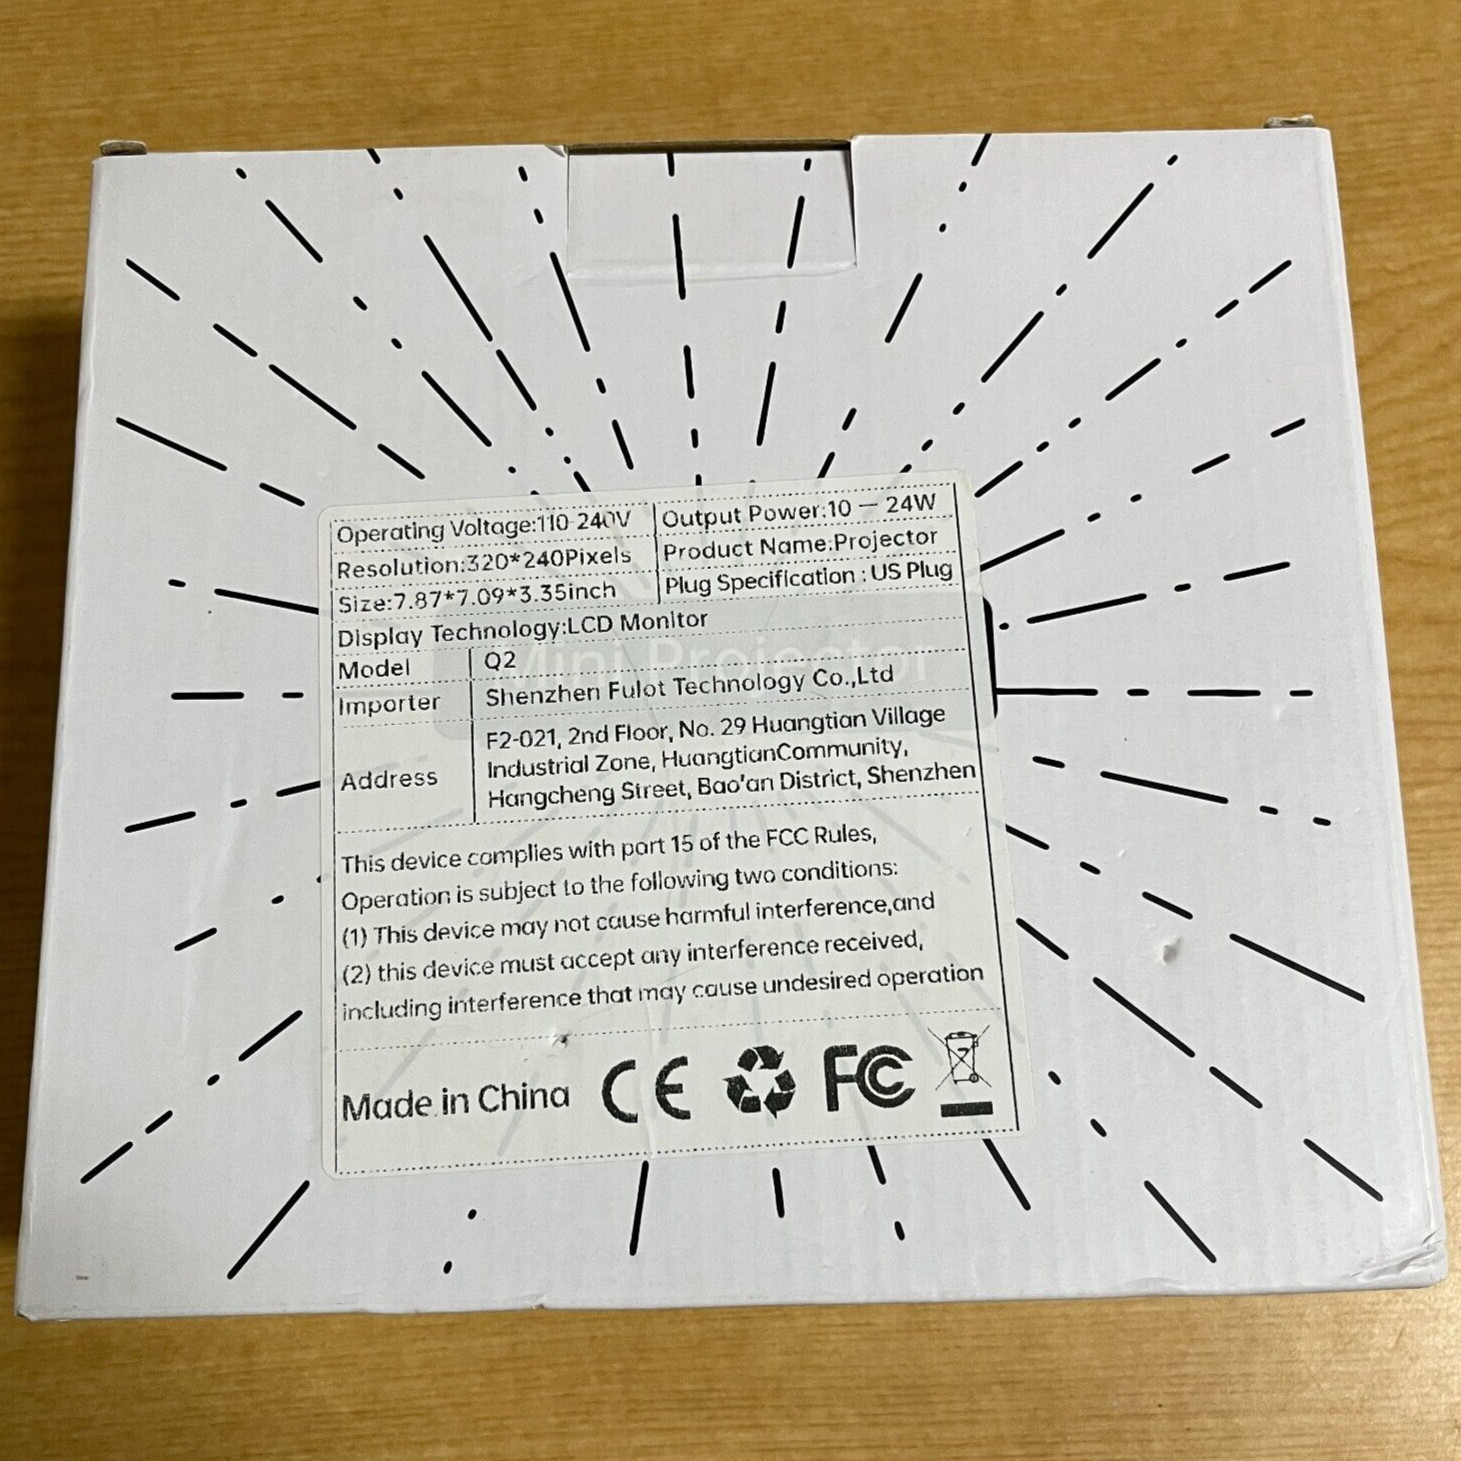 Operating Voltage:110-240V
Output Power:10 — 24W
Resolution:320*240Pixels
Product Name:Projector
Size:7.87*7.09*3.35inch
Plug Specification : US Plug
Display Technology:LCD Monitor
Mini Projector
Model Q2
Importer Shenzhen Fulot Technology Co.,Ltd
Address
F2-021, 2nd Floor, No. 29 Huangtian Village
Industrial Zone, HuangtianCommunity,
Hangcheng Street, Bao'an District, Shenzhen
This device complies with part 15 of the FCC Rules,
Operation is subject to the following two conditions:
(1) This device may not cause harmful interference,and
(2) this device must accept any interference received,
including interference that may cause undesired operation
Made in China CE FC